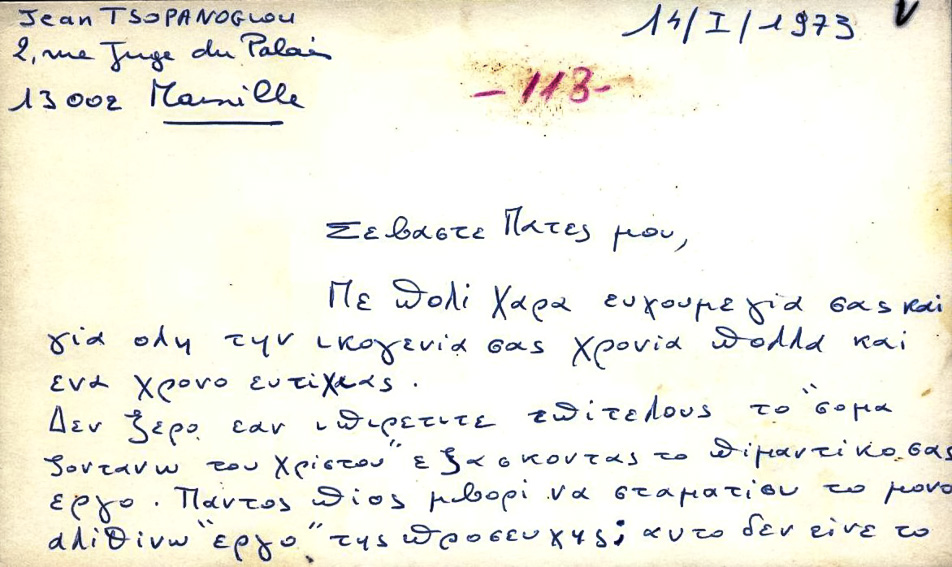 Jean TSOPANOGLOU
14/I/1973
2, rue Juge du Palais
-113-
13002 Marseille
Σεβαστε Πατες μου,
Με πολι χαρα ευχουμε γiα σας και
γiα ολη την ικογενiα σας χρονiα πολλα και
ενα χρονο ευτiχιας.
Δεν ξερο εαν ιπιρετιτε επiτελους το "σομα
ζοντανω του χριστου" εξασκοντας το πiμαντiκο σας
εργο. Παντος πiος μπορi να σταματiσι το μονο
αλiθiνω "εργο" της προσευχης; αυτο δεν εiνε το